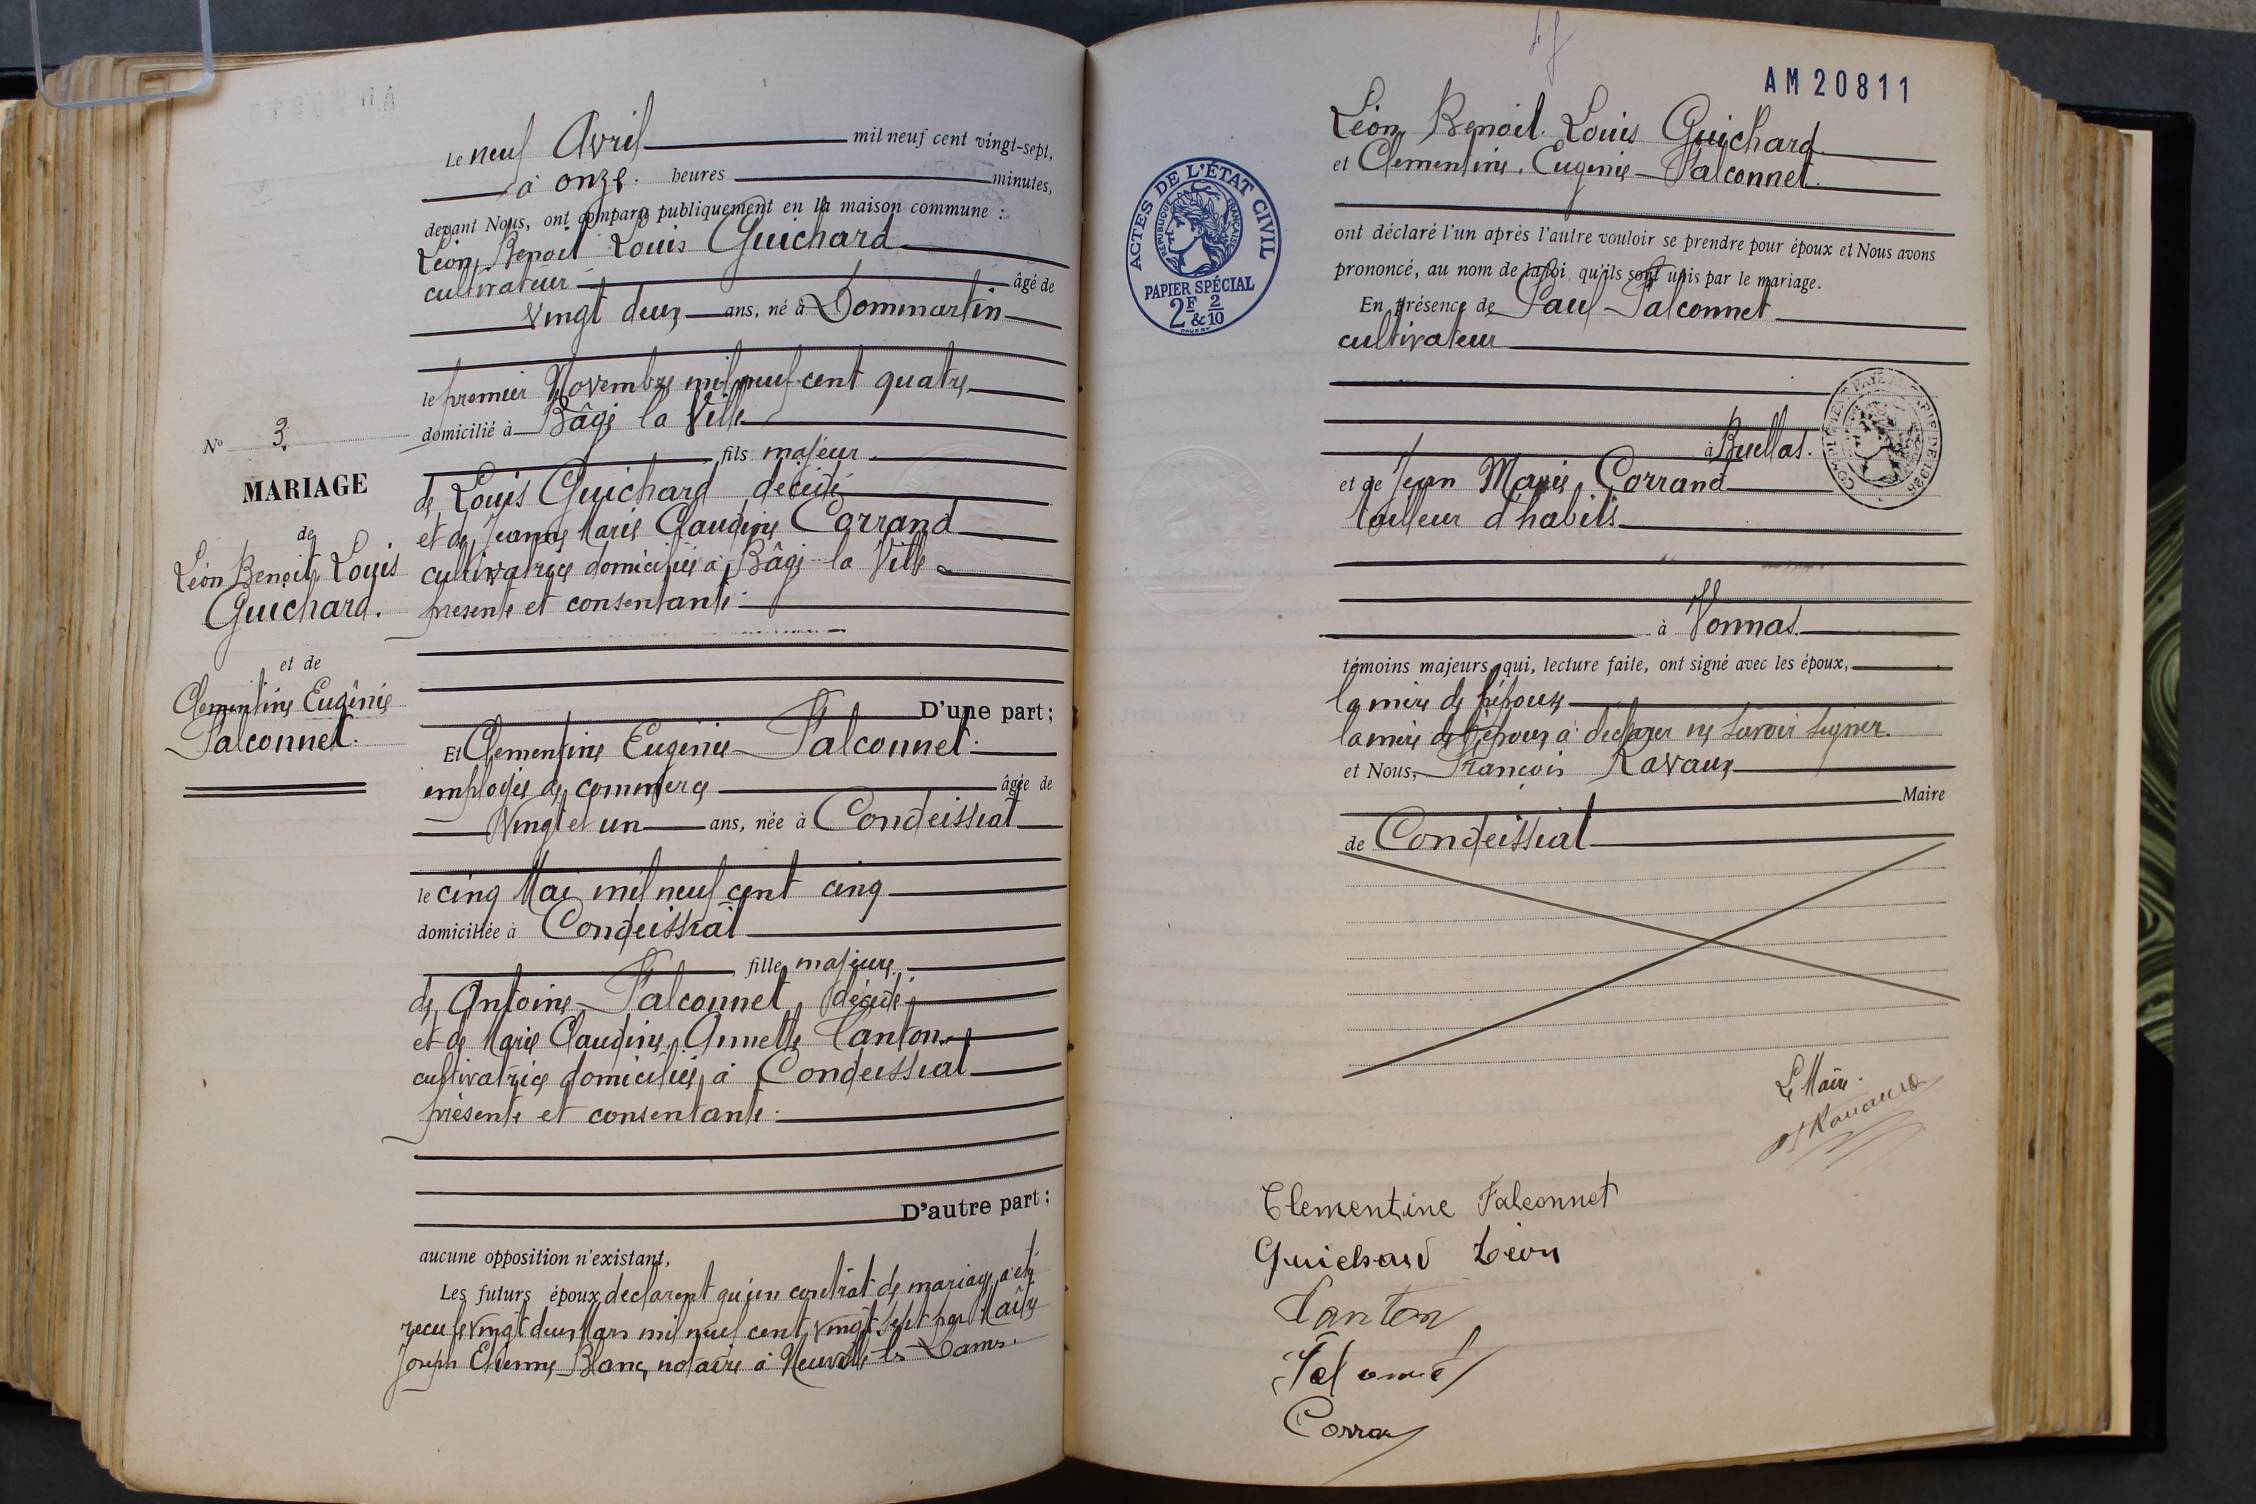 Le neuf Avril mil neuf cent vingt-sept,
à onze heures minutes,
devant Nous, ont comparu publiquement en la maison commune :
Léon, Benoit Louis Guichard
cultivateur âgé de
vingt deux ans, né à Dommartin
le premier Novembre mil neuf cent quatre
domicilié à Bâgé la Ville
fils majeur
de Louis Guichard décédé
et de Jeanne Marie Claudine Corrand
cultivatrice domiciliée à Bâgé la Ville
présente et consentante
D'une part ;
Et Clementine Eugénie Falconnet
employée de commerce âgée de
Vingt et un ans, née à Condeissiat
le cinq Mai mil neuf cent cinq
domiciliée à Condeissiat
fille majeure
de Antoine Falconnet, décédé
et de Marie Claudine, Annette Canton
cultivatrice domiciliée à Condeissiat
présente et consentante
D'autre part ;
aucune opposition n'existant,
Les futurs époux declarent qu'un contrat de mariage a été
recu le vingt deux Mars mil neuf cent vingt sept par Maître
Joseph Etienne Blanc, notaire à Neuville les Dames.
No 3.
MARIAGE
de
Léon Benoit Louis
Guichard.
et de
Clementine Eugénie
Falconnet.
AM 20811
Léon Benoit Louis Guichard
et Clementine, Eugenie Falconnet.
ACTES DE L'ÉTAT CIVIL
RÉPUBLIQUE FRANÇAISE
PAPIER SPÉCIAL
2F & 2/10
ont déclaré l'un après l'autre vouloir se prendre pour époux et Nous avons
prononcé, au nom de la loi, qu'ils sont unis par le mariage.
En présence de Paul Falconnet
cultivateur
à Buellas.
et de Jean Marie Corrand
tailleur d'habits
à Vonnas
témoins majeurs, qui, lecture faite, ont signé avec les époux,
la mère de l'épouse
la mère de l'époux a déclarer ne savoir signer.
et Nous, François Ravaux
Maire
de Condeissiat
Le Maire.
Clementine Falconnet
Guichard Léon
Canton